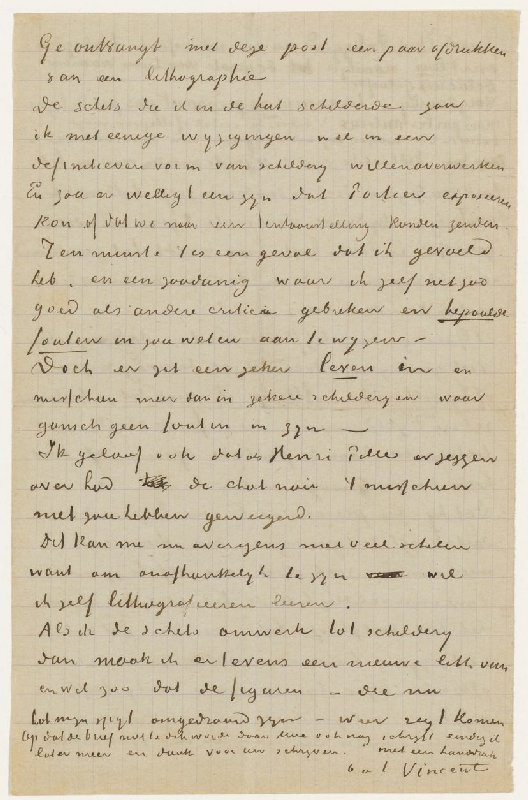 Ge ontvangt met deze post een paar afdrukken
van een lithographie
De schets die ik in de hut schilderde zou
ik met eenige wyzigingen wel in een
definitieven vorm van schildery willen overwerken
En zou er welligt een zyn dat Portier exposeeren
kon of dat we naar een tentoonstelling konden zenden.
Tenminste 't is een geval dat ik gevoeld
heb. en een zoodanig waar ik zelf net zoo
goed als andere critici gebreken en bepaalde
fouten in zou weten aan te wyzen –
Doch er zit een zeker leven in en
misschien meer dan in zekere schilderyen waar
gansch geen fouten in zyn —
Ik geloof ook dat als Henri Pille er zeggen
over had de chat noir 't misschien
niet zou hebben geweigerd.
Dit kan me nu overigens niet veel schelen
want om onafhankelyk te zyn wil
ik zelf lithografieeren leeren.
Als ik de schets omwerk tot schildery
dan maak ik er tevens een nieuwe lith van
en wel zoo dat de figuren – die nu
tot myn spyt omgedraaid zyn – weer regt komen
Op dat de brief niet te dik worde daar Moe ook nog schryft eindig ik
later meer en dank voor uw schryven. met een handdruk
b a t Vincent